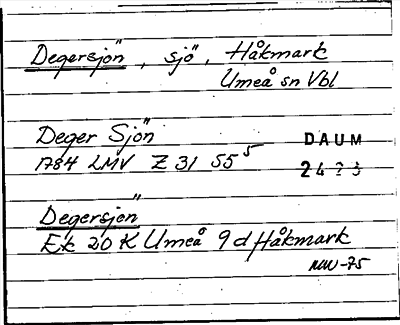 Degersjön, sjö, Håkmark
Umeå sn Vbl
Deger Sjön
1784 LMV Z 31 55⁵
DAUM
Degersjön
Ek 20 K Umeå 9 d Håkmark
MW-75